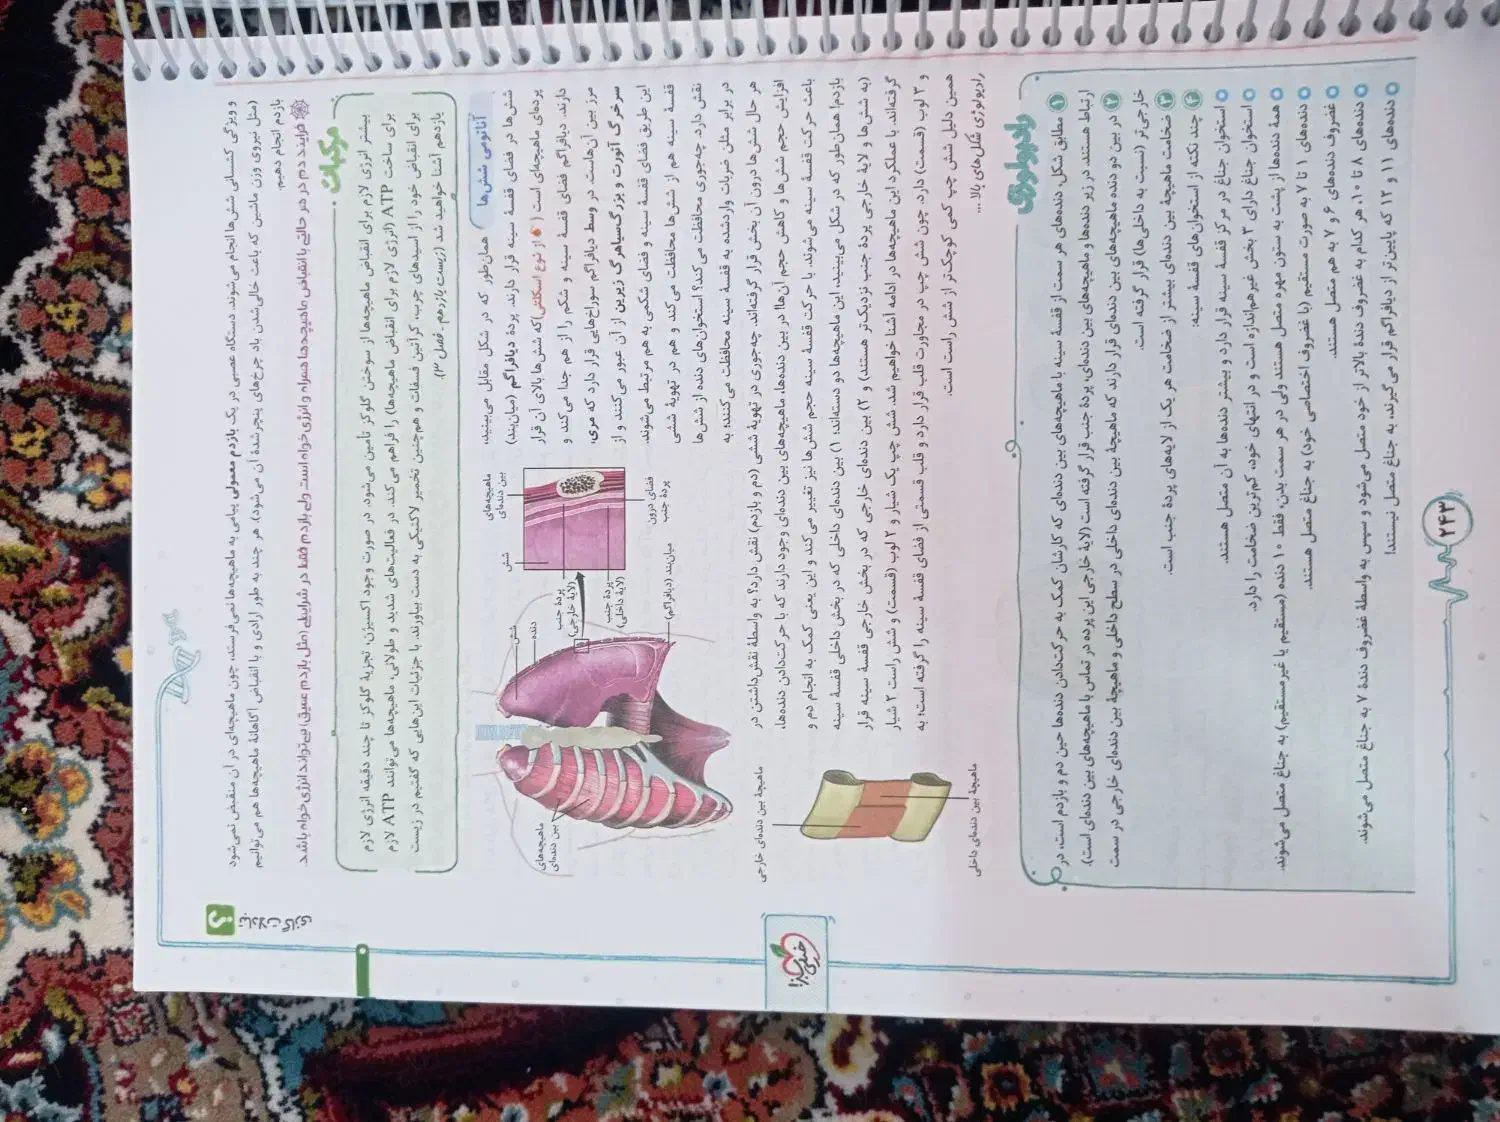 تبادلات گازی
و ویژگی کشسانی شش‌ها انجام می‌شوند. دستگاه عصبی در یک بازدم معمولی پیامی به ماهیچه‌ها نمی‌فرستد، چون ماهیچه‌ای در آن منقبض نمی‌شود
(مثل نیروی وزن ماشین که باعث خالی‌شدن باد چرخ‌های پنچرشدهٔ آن می‌شود). هر چند به طور ارادی و با انقباض آگاهانهٔ ماهیچه‌ها هم می‌توانیم
بازدم انجام دهیم.
فرایند دم در هر حالتی با انقباض ماهیچه‌ها همراه و انرژی‌خواه است ولی بازدم فقط در شرایطی (مثل بازدم عمیق) می‌تواند انرژی‌خواه باشد.
مرکبات
بیشتر انرژی لازم برای انقباض ماهیچه‌ها از سوختن گلوکز تأمین می‌شود. در صورت وجود اکسیژن، تجزیهٔ گلوکز تا چند دقیقه انرژی لازم
برای ساخت ATP (انرژی لازم برای انقباض ماهیچه‌ها) را فراهم می‌کند. در فعالیت‌های شدید و طولانی، ماهیچه‌ها می‌توانند ATP لازم
برای انقباض خود را از اسیدهای چرب، کرآتین فسفات و هم‌چنین تخمیر لاکتیکی به دست بیاورند. با جزئیات این‌هایی که گفتیم در زیست
یازدهم آشنا خواهید شد (زیست یازدهم - فصل ۳).
آناتومی شش‌ها
همان‌طور که در شکل مقابل می‌بینید،
شش‌ها در فضای قفسهٔ سینه قرار دارند. پردهٔ دیافراگم (میان‌بند)
پرده‌ای ماهیچه‌ای است (از نوع اسکلتی) که شش‌ها بالای آن قرار
دارند. دیافراگم فضای قفسهٔ سینه و شکم را از هم جدا می‌کند و
مرز بین آن‌هاست. در وسط دیافراگم سوراخ‌هایی قرار دارد که مری،
سرخرگ آئورت و بزرگ‌سیاهرگ زیرین از آن عبور می‌کنند و از
این طریق فضای قفسهٔ سینه و فضای شکمی به هم مرتبط می‌شوند.
قفسهٔ سینه هم از شش‌ها محافظت می‌کند و هم در تهویهٔ ششی
نقش دارد. چه‌جوری محافظت می‌کند؟ استخوان‌های دنده از شش‌ها
در برابر مثلن ضربات واردشده به قفسهٔ سینه محافظت می‌کنند؛ به
هر حال شش‌ها درون آن بخش قرار گرفته‌اند. چه‌جوری در تهویهٔ ششی (دم و بازدم) نقش دارد؟ به واسطهٔ نقش‌داشتن در
افزایش حجم شش‌ها و کاهش حجم آن‌ها! در بین دنده‌ها، ماهیچه‌های بین دنده‌ای وجود دارند که با حرکت‌دادن دنده‌ها،
باعث حرکت قفسهٔ سینه می‌شوند. با حرکت قفسهٔ سینه حجم شش‌ها نیز تغییر می‌کند و این یعنی کمک به انجام دم و
بازدم! همان‌طور که در شکل می‌بینید، این ماهیچه‌ها دو دسته‌اند: ۱) بین دنده‌ای داخلی که در بخش داخلی قفسهٔ سینه
(به شش‌ها و لایهٔ خارجی پردهٔ جنب نزدیک‌تر هستند) و ۲) بین دنده‌ای خارجی که در بخش خارجی قفسهٔ سینه قرار
گرفته‌اند. با عملکرد این ماهیچه‌ها در ادامه آشنا خواهیم شد. شش چپ یک شیار و ۲ لوب (قسمت) و شش راست ۲ شیار
و ۳ لوب (قسمت) دارد. چون شش چپ در مجاورت قلب قرار دارد و قلب قسمتی از فضای قفسهٔ سینه را گرفته است؛ به
همین دلیل شش چپ کمی کوچک‌تر از شش راست است.
رادیولوژی شکل‌های بالا ...
ماهیچه‌های
بین دنده‌ای
شش
دنده
شش
پردهٔ جنب
(لایهٔ خارجی)
پردهٔ جنب
(لایهٔ داخلی)
میان‌بند (دیافراگم)
ماهیچه‌های
بین دنده‌ای
فضای درون
پردهٔ جنب
ماهیچهٔ بین دنده‌ای خارجی
ماهیچهٔ بین دنده‌ای داخلی
رادیولوژی
۱ مطابق شکل، دنده‌های هر سمت از قفسهٔ سینه با ماهیچه‌های بین دنده‌ای که کارشان کمک به حرکت‌دادن دنده‌ها حین دم و بازدم است، در
ارتباط هستند. در زیر دنده‌ها و ماهیچه‌های بین دنده‌ای، پردهٔ جنب قرار گرفته است (لایهٔ خارجی این پرده در تماس با ماهیچه‌های بین دنده‌ای است).
۲ در بین دو دنده ماهیچه‌های بین دنده‌ای قرار دارند که ماهیچهٔ بین دنده‌ای داخلی در سطح داخلی و ماهیچهٔ بین دنده‌ای خارجی در سمت
خارجی‌تر (نسبت به داخلی‌ها) قرار گرفته است.
۳ ضخامت ماهیچهٔ بین دنده‌ای بیشتر از ضخامت هر یک از لایه‌های پردهٔ جنب است.
۴ چند نکته از استخوان‌های قفسهٔ سینه:
استخوان جناغ در مرکز قفسهٔ سینه قرار دارد و بیشتر دنده‌ها به آن متصل هستند.
استخوان جناغ دارای ۳ بخش غیرهم‌اندازه است و در انتهای خود، کم‌ترین ضخامت را دارد.
همهٔ دنده‌ها از پشت به ستون مهره متصل هستند ولی در هر سمت بدن، فقط ۱۰ دنده (مستقیم یا غیرمستقیم) به جناغ متصل می‌شوند.
دنده‌های ۱ تا ۷ به صورت مستقیم (با غضروف اختصاصی خود) به جناغ متصل هستند.
غضروف دنده‌های ۶ و ۷ به هم متصل هستند.
دنده‌های ۸ تا ۱۰، هر کدام به غضروف دندهٔ بالاتر از خود متصل می‌شود و سپس به واسطهٔ غضروف دندهٔ ۷ به جناغ متصل می‌شوند.
دنده‌های ۱۱ و ۱۲ که پایین‌تر از دیافراگم قرار می‌گیرند، به جناغ متصل نیستند!
خیلی سبز
۲۴۳